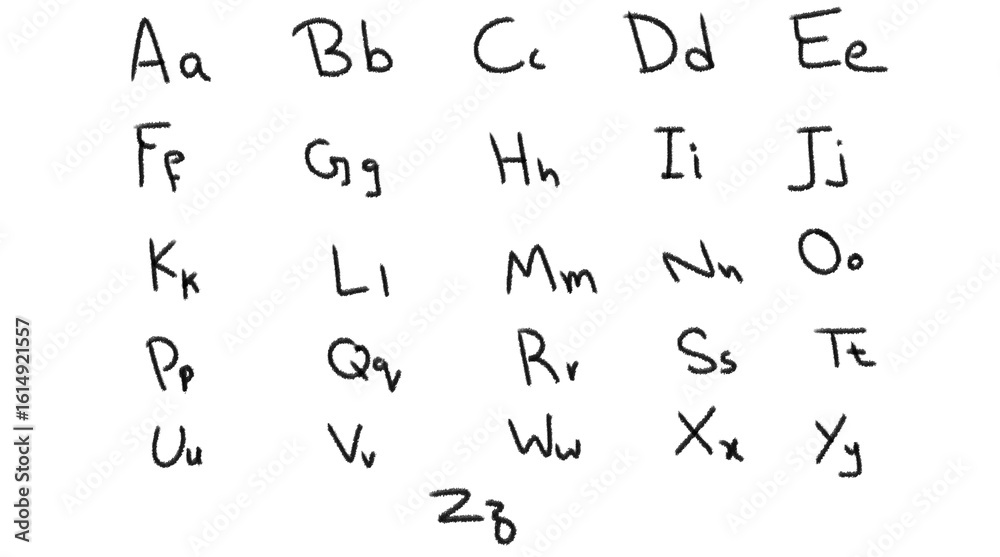 Aa Bb Cc Dd Ee
Ff Gg Hh Ii Jj
Kk Ll Mm Nn Oo
Pp Qq Rr Ss Tt
Uu Vv Ww Xx Yy
Zz
Adobe Stock | #1614921557